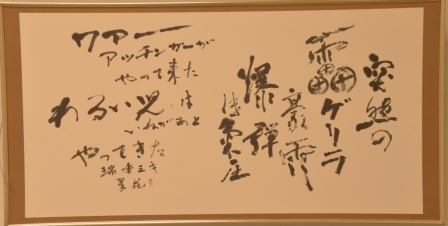 突然の
雷ゲリラ
豪雨
爆弾
低気圧
ワァー
アッチンガーが
やって来た
わるい児は
いねがあと
やってきた